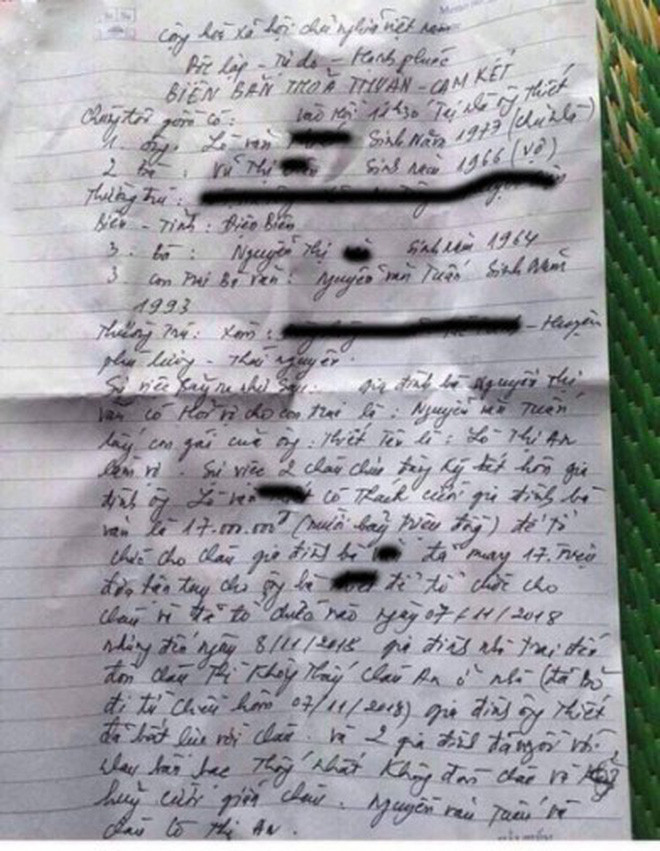 Cộng hoà xã hội chủ nghĩa việt nam
Độc lập - Tự do - Hạnh phúc
BIÊN BẢN THOẢ THUẬN - CAM KẾT
Chúng tôi gồm có: vào hồi 12h30 Tại nhà ông Thiết
1. ông. Lò văn Sinh Năm 1977 (chủ hộ)
2 Bà : Vũ Thị Sinh năm 1966 (vợ)
Thường trú :
Biên - Tỉnh : Điện Biên
3 : bà : Nguyễn Thị sinh năm 1964
3 con Trai Bà vân : Nguyễn văn Tuấn Sinh Năm
1993
Thường Trú : Xóm : - Huyện
phú lương - Thái nguyên .
Sự việc xảy ra như sau : gia đình bà Nguyễn Thị
vân có Hỏi vợ cho con trai là : Nguyễn văn Tuấn
lấy con gái của ông : Thiết Tên là : Lò Thị An
làm vợ . Sự việc 2 cháu chưa đăng ký kết hôn gia
đình ông Lò văn có Thách cưới gia đình bà
vân là 17.000.000đ (mười bảy triệu đồng) để tổ
chức cho cháu gia đình bà đã mang 17. triệu
đưa tận tay cho ông bà để tổ chức cho
cháu và đã tổ chức vào ngày 07/11/2018
nhưng đến ngày 8/11/2018 gia đình nhà trai đến
đón cháu Thì Không Thấy cháu An ở nhà (đã Bỏ
đi từ chiều hôm 07/11/2018) gia đình ông Thiết
đã bất lực với cháu . và 2 gia đình đã ngồi với
nhau bàn bạc Thống Nhất Không đón cháu về
huỷ cưới giữa cháu . Nguyễn văn Tuấn và
cháu Lò Thị AN .